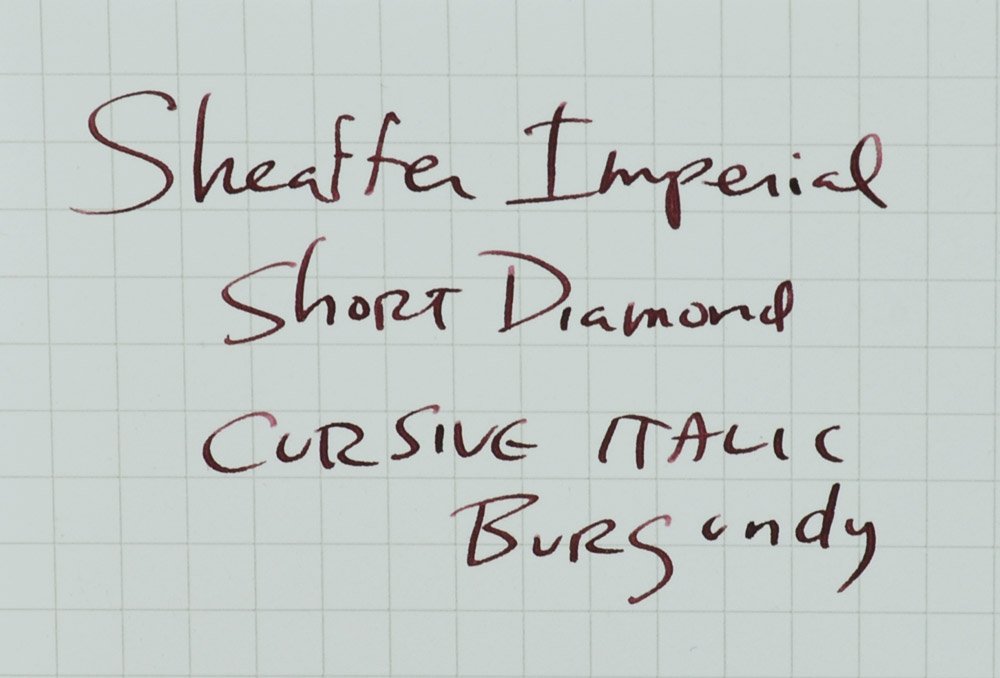 Sheaffer Imperial
Short Diamond
CURSIVE ITALIC
Burgundy